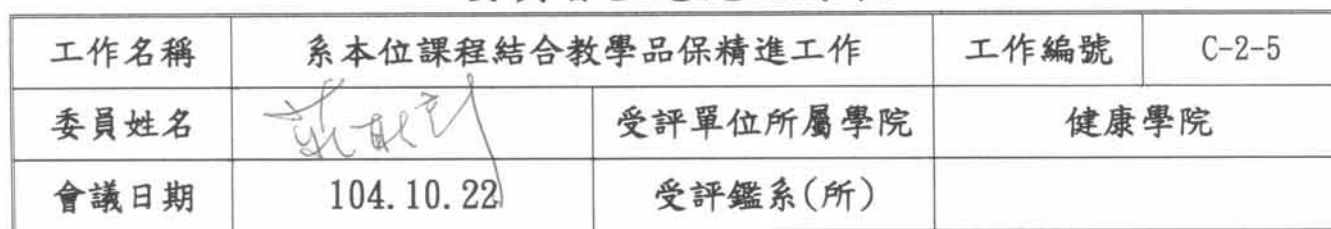 工作名稱 系本位課程結合教學品保精進工作 工作編號 C-2-5
委員姓名 受評單位所屬學院 健康學院
會議日期 104.10.22 受評鑑系(所)